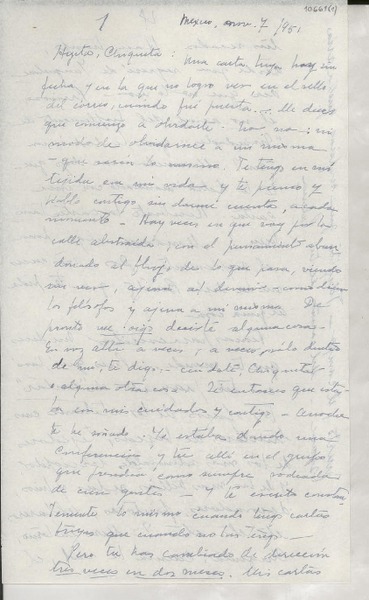 1066(1)
1
Mexico, nov. 7, 1951
Hijita, Chiquita: Una carta tuya hoy sin
fecha y en la que no logro ver en el sello
de correo, cuando fué puesta. - Me dices
que comienzo a olvidarte. No - no: ni
modo de olvidarme a mí misma
- que sería lo mismo. Te tengo en mí
tejida con mi vida y te pienso y
hablo contigo sin darme cuenta, a cada
momento. - Hay veces en que voy por la
calle abstraída, con el pensamiento aban-
donado al flujo de lo que pasa, viendo
sin ver, ajena al - como dicen
los filósofos y ajena a mí misma. De
pronto me oigo decirte alguna cosa.
En voz alta a veces, a veces sólo dentro
de mí, te digo - cuídate, Chiquita
o alguna otra cosa. Y entonces que estoy
con mis cuidados y contigo. - Anoche
te he soñado. Yo estaba dando una
Conferencia, y tú allí en el grupo
que como siempre rodeada
de cien gentes - Y te siento constan-
temente lo mismo cuando tengo cartas
tuyas que cuando no las tengo. -
Pero tú has cambiado de dirección
tres veces en dos meses. Mis cartas